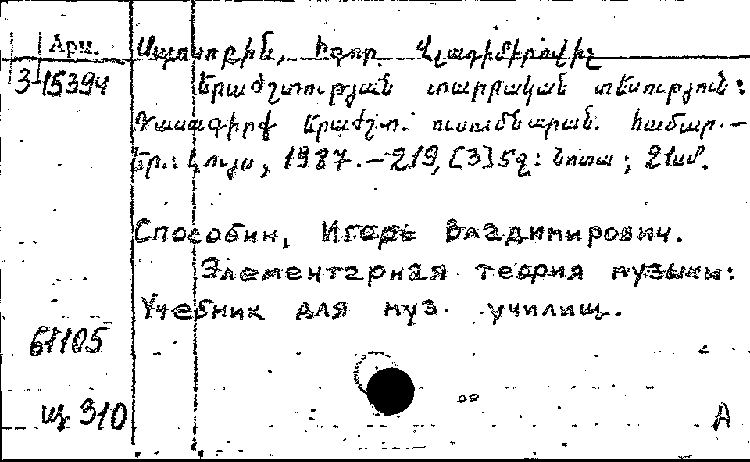 Арм.
Սպոսոբին, Իգոր Վլադիմիրովիչ
3-15394
Երաժշտության տարրական տեսություն:
Դասագիրք երաժշտ. ուսումնարան. համար.–
Եր.: Լույս, 1987.–219, [3] էջ: նոտա; 21սմ.
Способин, Игорь Владимирович.
Элементарная теория музыки:
Учебник для муз. училищ.
61105
310
A